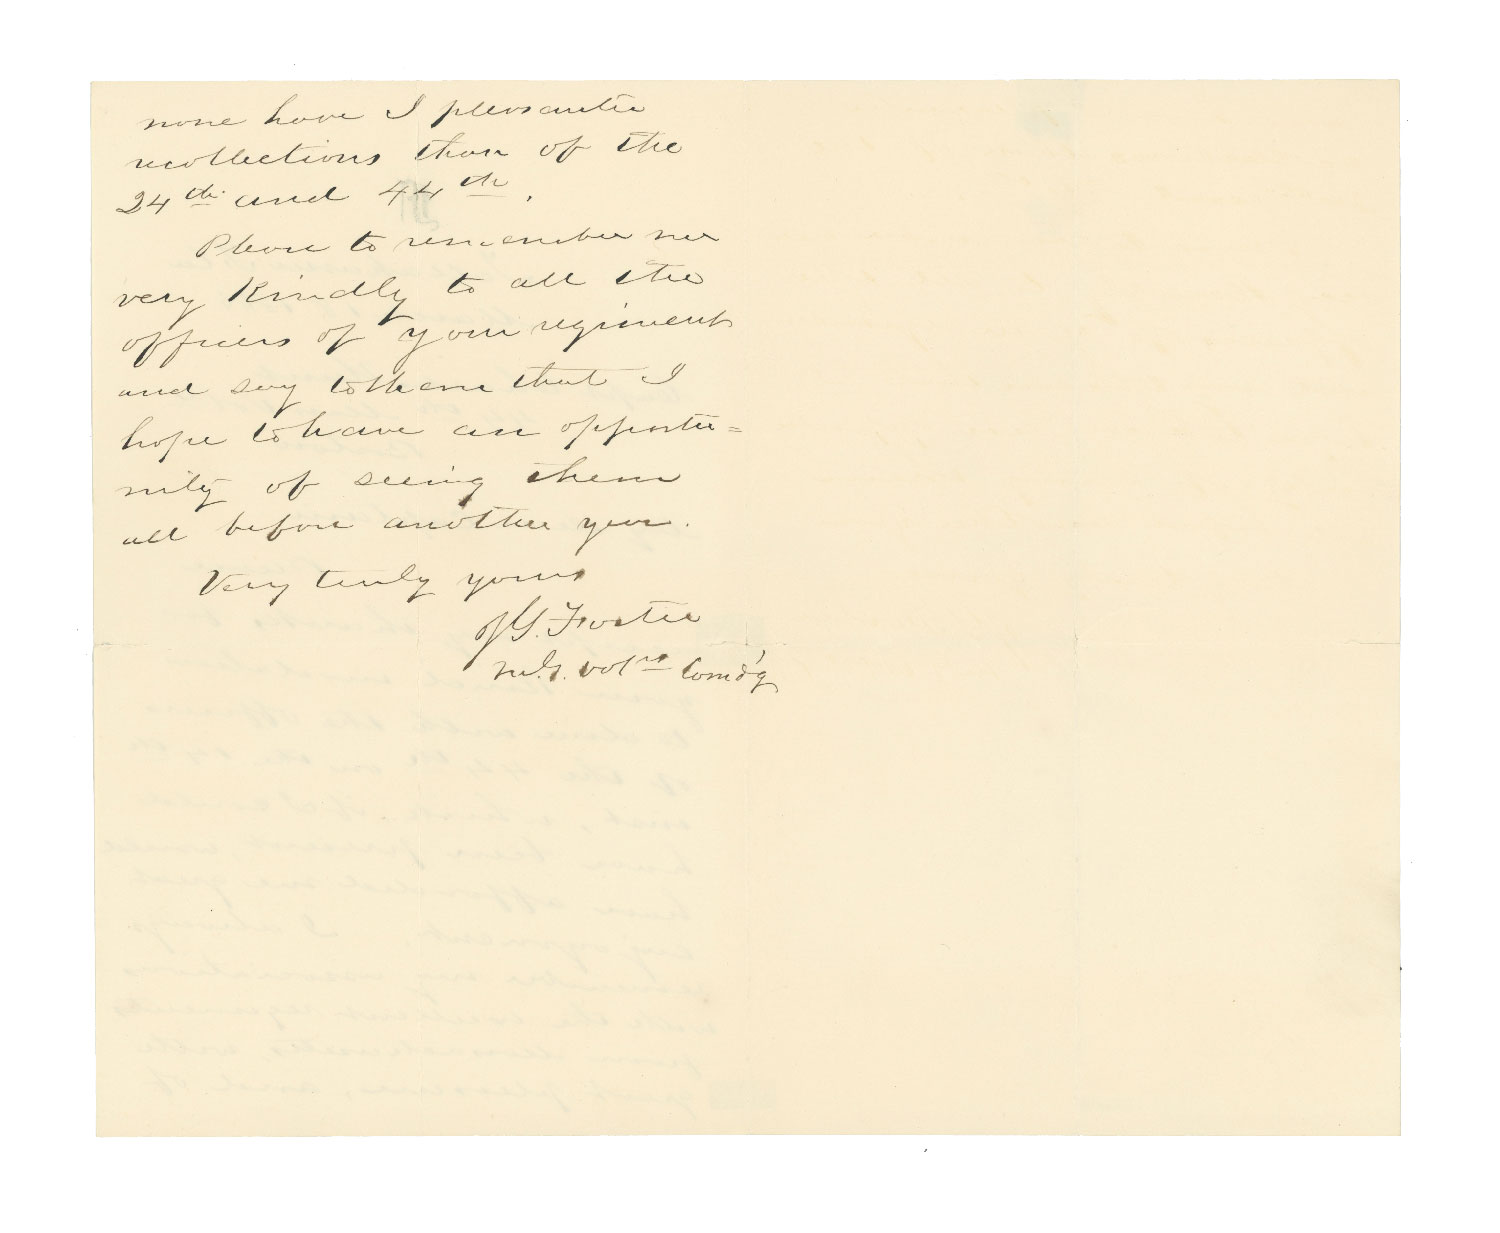 none have I pleasanter
recollections than of the
24th and 44th.
Please to remember me
very Kindly to all the
officers of your regiment
and say to them that I
hope to have an opportu=
nity of seeing them
all before another year.
Very truly yours
J. G. Foster
M.G. Vols Comd'g